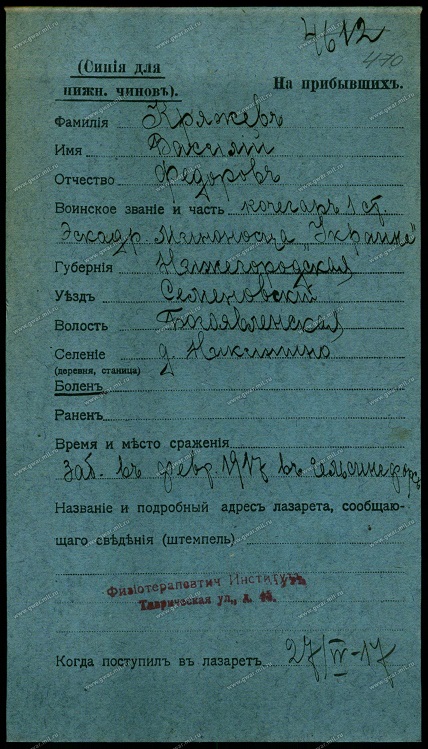 4612
470
(Синія для На прибывшихъ.
нижн. чиновъ).
Фамилія Кряжевъ
Имя Василій
Отчество Федоровъ
Воинское званіе и часть кочегаръ 1 ст.
Эскадр. Миноносца „Украина"
Губернія Нижегородская
Уѣздъ Семеновскій
Волость Богоявленская
Селеніе д. Никитино
(деревня, станица)
Боленъ
Раненъ
Время и мѣсто сраженія
Заб. въ февр. 1917 въ Гельсингфорсѣ
Названіе и подробный адресъ лазарета, сообщаю-
щаго свѣдѣнія (штемпель)
Физіотерапевтич Институтъ
Таврическая ул., д.
Когда поступилъ въ лазаретъ 27/IV-17
www.gwar.mil.ru